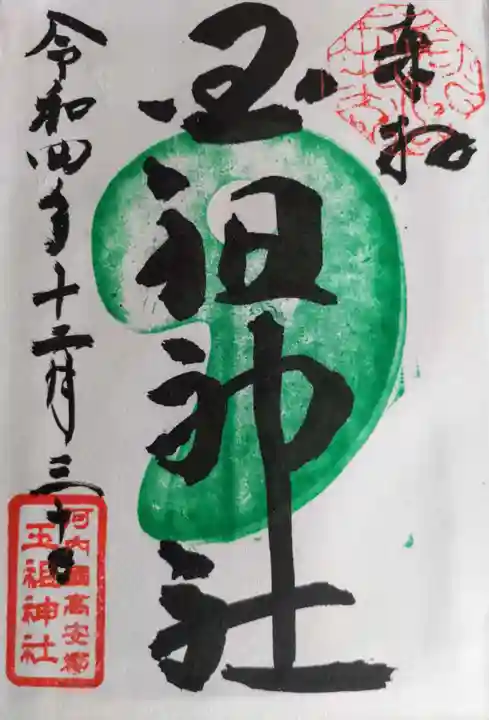 奉拝
玉祖神社
令和四年十二月三十日
河内國高安郷
玉祖神社